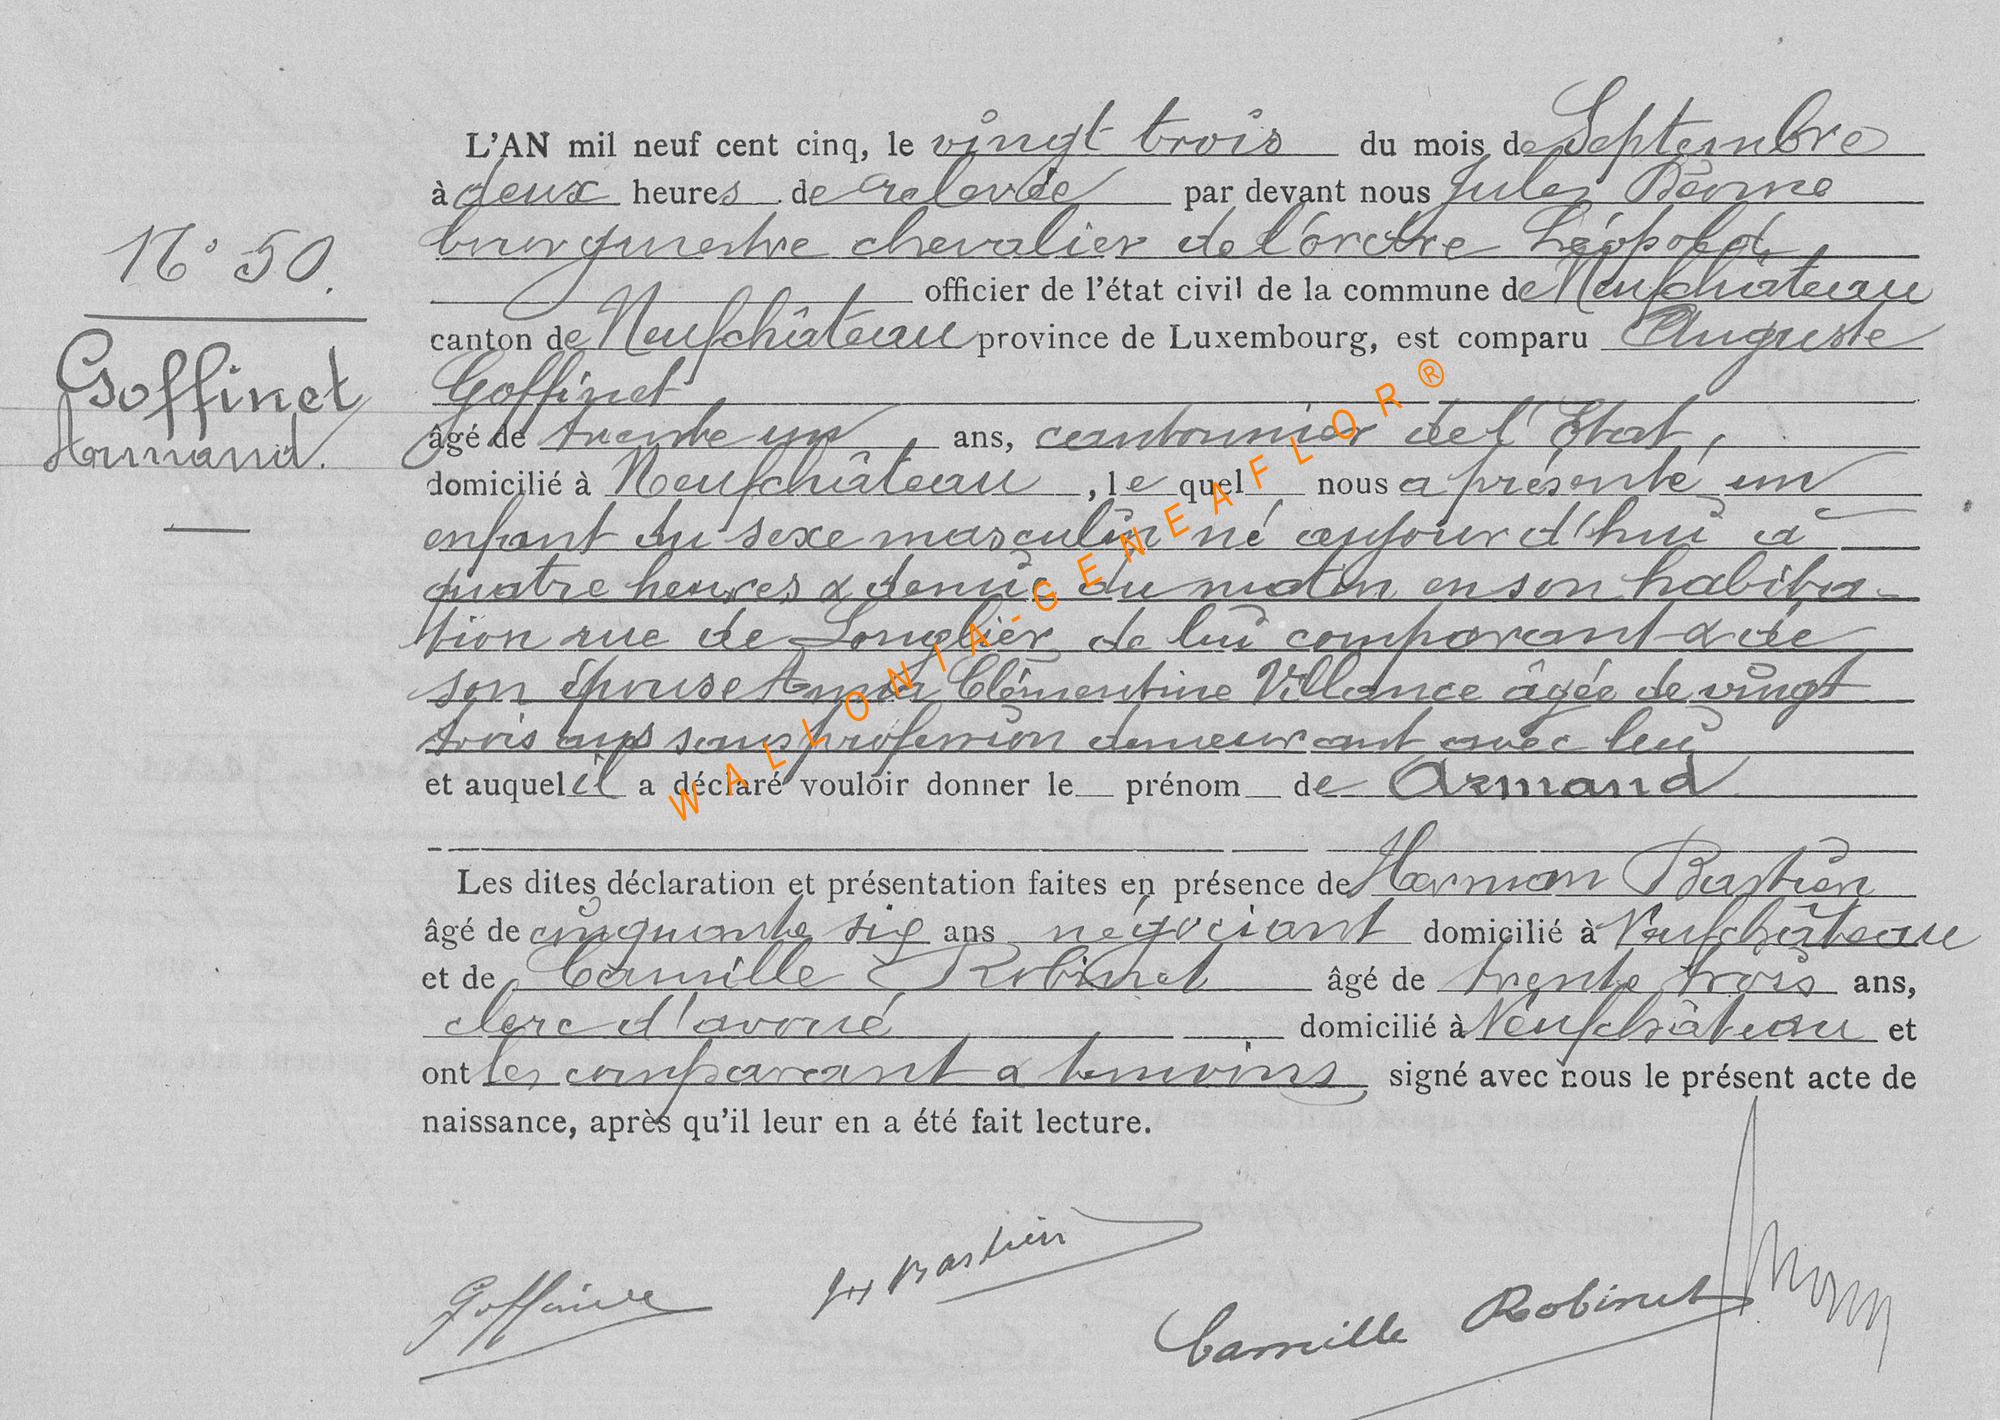 N° 50.
Goffinet
Armand.
L'AN mil neuf cent cinq, le vingt trois du mois de Septembre
à deux heures de relevée par devant nous Jules
bourgmestre chevalier de l'ordre Léopold,
officier de l'état civil de la commune de Neufchâteau
canton de Neufchâteau province de Luxembourg, est comparu Auguste
Goffinet
âgé de trente un ans, cantonnier de l'Etat,
domicilié à Neufchâteau, le quel nous a présenté un
enfant du sexe masculin né aujourd'hui à
quatre heures & demie du matin en son habita-
tion rue de Longlier, de lui comparant & de
son épouse Anna Clémentine Villance âgée de vingt
trois ans sans profession demeurant avec lui
et auquel il a déclaré vouloir donner le prénom de Armand
Les dites déclaration et présentation faites en présence de Herman Bastien
âgé de cinquante six ans négociant domicilié à Neufchâteau
et de Camille Robinet âgé de trente trois ans,
clerc d'avoué domicilié à Neufchâteau et
ont les comparant & témoins signé avec nous le présent acte de
naissance, après qu'il leur en a été fait lecture.
Bastien
Goffinet
Camille Robinet
WALLONIA-GENEAFLOR®